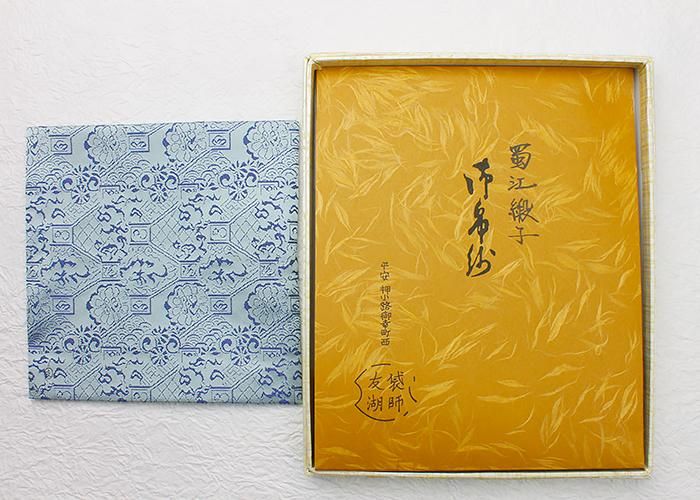 蜀江緞子
御帛紗
平安 押小路御幸町西
袋師
友湖